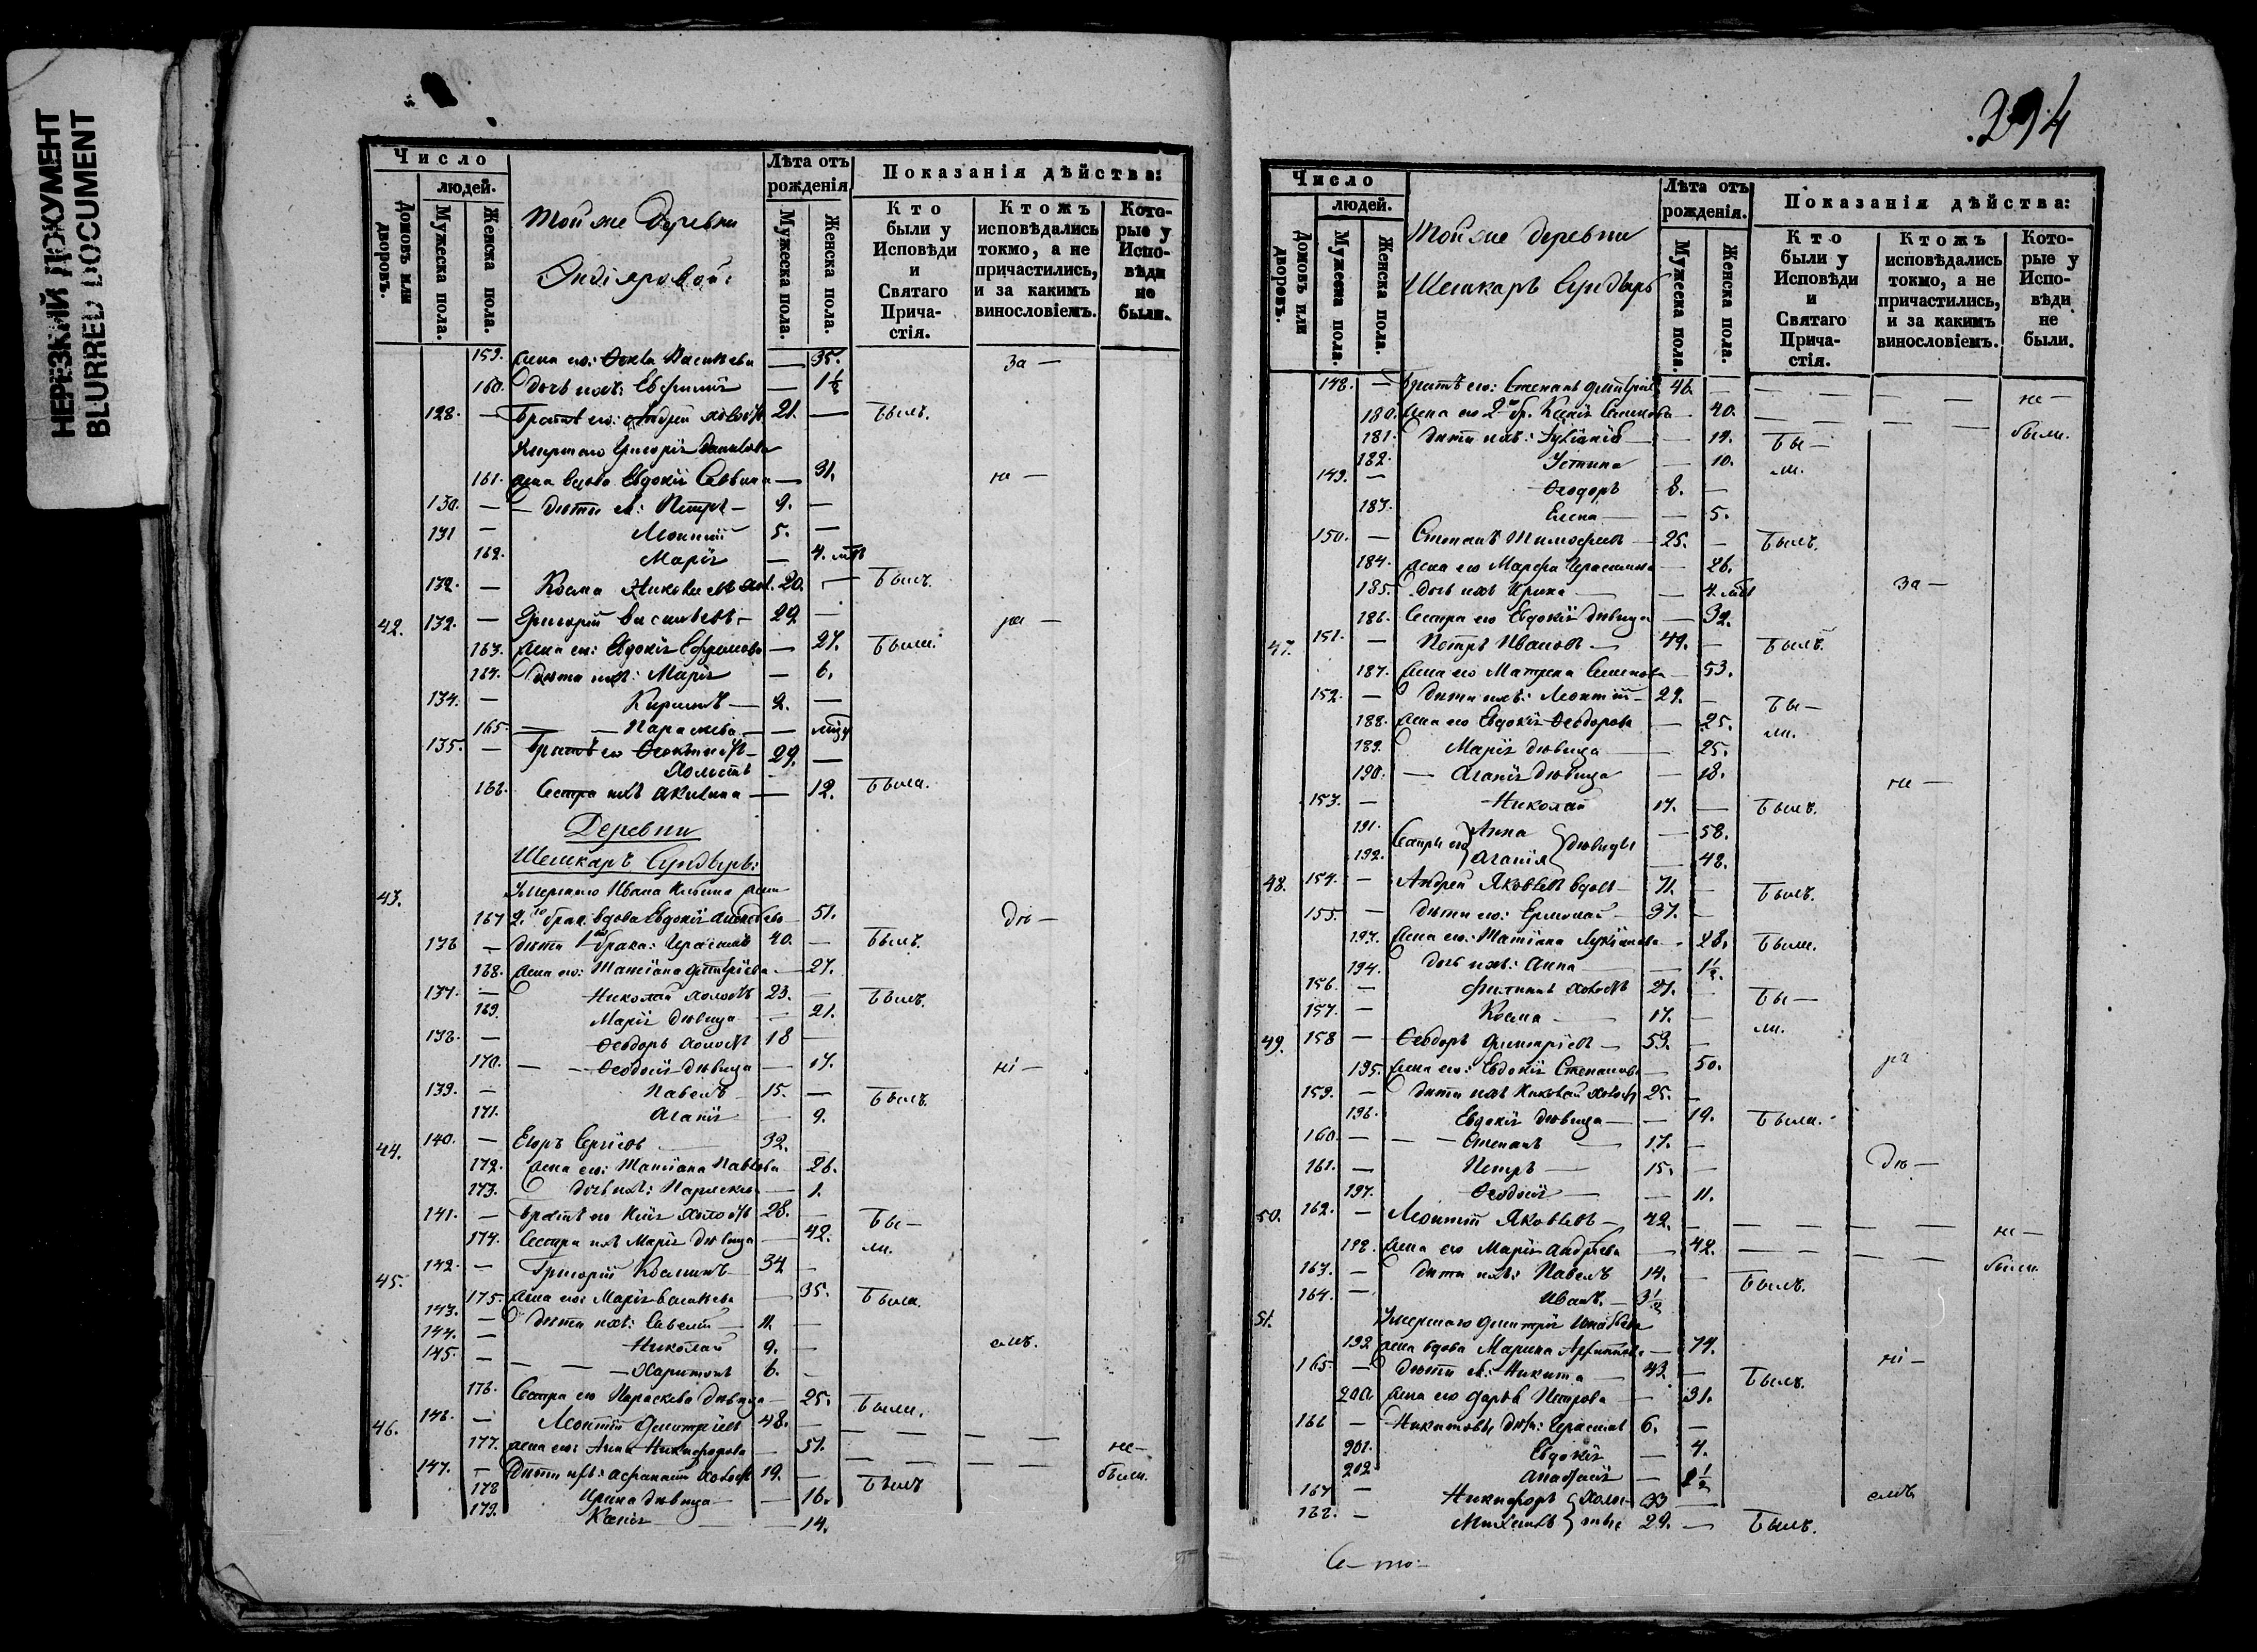 НЕРЕЗКИЙ ДОКУМЕНТ
BLURRED DOCUMENT
Число
людей.
Домовъ или дворовъ.
Мужеска пола.
Женска пола.
Той же деревни
Лѣта отъ рожденія
Мужеска пола.
Женска пола.
Показанія дѣйства:
Кто были у Исповѣди и Святаго Прича-стія.
Ктожъ исповѣдались токмо, а не причастились, и за какимъ винословіемъ.
Кото-рые у Испо-вѣди не были.
159. жена его: Васильева — 35. за —
160. дочь ихъ: Евфимія — 1½
128. — Братъ его: Андрей холостъ 21. — былъ.
Умершаго Григорія
161. жена вдова Евдокія Саввина — 31. на —
130. — дѣти ея: Петръ — 9. —
131 — Леонтій 5. —
162. Марія — 4. лѣтъ
132. — Косма 20. — былъ.
42. 132. — Григорій Васильевъ — 29 — ра —
163. жена его: Евдокія Ефремова — 27. были.
164. дѣти ихъ: Марія — 6.
134. — Кириллъ — 2. —
165. — Параскева —
135. — Братъ его 29. —
холостъ
166. Сестра ихъ Акилина — 12. была.
Деревни
Шешкаръ Сундырь:
43. Умершаго Ивана жена
167 2.го брака вдова Евдокія Алексѣева 51. дѣ —
136 — дѣти 1 брака: Герасимъ 40. — былъ.
168. жена его: Татіана Димитріева — 27.
137. — Николай холостъ 23. — былъ.
169. Марія дѣвица — 21.
138. — Ѳеодоръ холостъ 18 —
170. — Ѳеодосія дѣвица — 17. ні —
139. — Павелъ — 15. — былъ.
171. Агапія — 9.
44. 140. — Егоръ Сергѣевъ — 32.
172. жена его: Татіана Павлова 26.
173. дочь ихъ: Параскева — 1.
141. — Братъ его холостъ 28. — бы —
174. Сестра ихъ Марія дѣвица — 42. ли.
45. 142. — Григорій Косминъ — 34 —
175. жена его: Марія Васильева — 35. была.
143. — дѣти ихъ: Савелій — 11. —
144. — Николай 9. —
145. — Харитонъ 6. — емъ.
176. Сестра его Параскева дѣвица — 25. были.
46. 146. — Леонтій Димитріевъ 48. —
177. жена его: Анна Никифорова — 51. не —
147. — дѣти ихъ: Афанасій холостъ 19. — былъ были.
178 Ирина дѣвица — 16.
179. Ксенія — 14.
294
Число
людей.
Домовъ или дворовъ.
Мужеска пола.
Женска пола.
Той же деревни
Шешкаръ Сундырь
Лѣта отъ рожденія.
Мужеска пола.
Женска пола.
Показанія дѣйства:
Кто были у Исповѣди и Святаго Прича-стія.
Ктожъ исповѣдались токмо, а не причастились, и за какимъ винословіемъ.
Кото-рые у Испо-вѣди не были.
148. — Братъ его: Степанъ Димитріевъ 46. — не —
180. жена его 2 бр. Ксенія — 40. были.
181. дѣти ихъ: Іуліанія — 14. бы —
182. Устина — 10. ли.
149. — Ѳеодоръ 8. —
183. Елена — 5.
150. — Степанъ Тимофеевъ — 25. — былъ.
184. жена его Марфа Герасимова — 26.
185. дочь ихъ Ирина — 4. лѣтъ за —
186. Сестра его Евдокія дѣвица — 32.
47. 151. — Петръ Ивановъ — 49. — былъ.
187. жена его Матрена Семенова — 53.
152. — дѣти ихъ: Леонтій — 29. — бы —
188. жена его Евдокія Ѳеодорова — 25. ли.
189. Марія дѣвица — 25.
190. — Агапія дѣвица — 18. на —
153. — Николай 17. — былъ.
191. Сестры его Анна дѣвицы — 58.
192. Агапія — 48.
48. 154. — Андрей Яковлевъ вдовъ — 71. — былъ.
155. — дѣти его: Ермолай — 37. —
193. жена его: Татіана Лукіанова — 28. были.
194. дочь ихъ: Анна — 1½.
156. — Филиппъ холостъ 27. — бы —
157. — Косма — 17. — ли.
49. 158 — Ѳеодоръ Димитріевъ — 53. —
195. жена его: Евдокія Степанова — 50. ра
159. — дѣти ихъ Николай холостъ 25. —
196. Евдокія дѣвица — 19. была.
160. — Степанъ — 17. —
161. — Петръ — 15. — дѣ —
197. Ѳеодосія — 11.
50. 162. — Леонтій Яковлевъ — 42. — не —
198. жена его Марія Андреева — 42. были.
163. — дѣти ихъ: Павелъ 14. — былъ.
164. — Иванъ. — 3½
51. Умершаго Димитрія
199 жена вдова Марина — 74. ні —
165. — дѣти ея: Никита — 43 — былъ.
200. жена его Дарья Петрова — 31.
166 — Никитовы дѣти: Герасимъ 6. —
201. Евдокія — 4.
202. Анастасія —
167 — Никифоръ холо- 33 — емъ
168. — Михаилъ стые 29. — былъ.